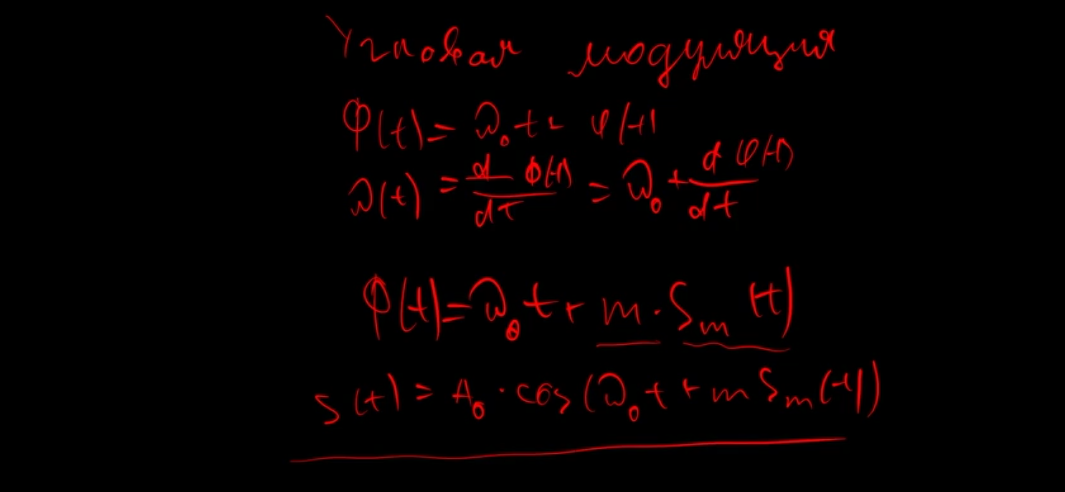 Угловая модуляция
Φ(t) = ω₀t + φ(t)
ω(t) = d Φ(t) / dt = ω₀ + d φ(t) / dt
φ(t) = ω₀t + m · Sₘ(t)
S(t) = A₀ · cos(ω₀t + m Sₘ(t))